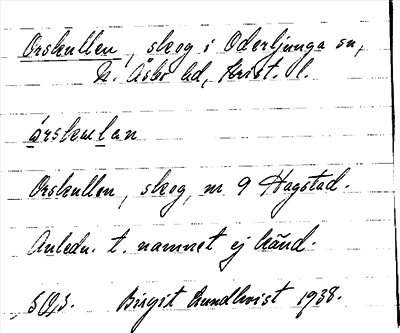 Orskullen, skog i Oderljunga sn,
N. Åsbo hd, Krist. l.
årskulan
Orskullen, skog, nr 9 Hagstad.
Anledn. t. namnet ej känd.
Birgit Lundkvist 1938.